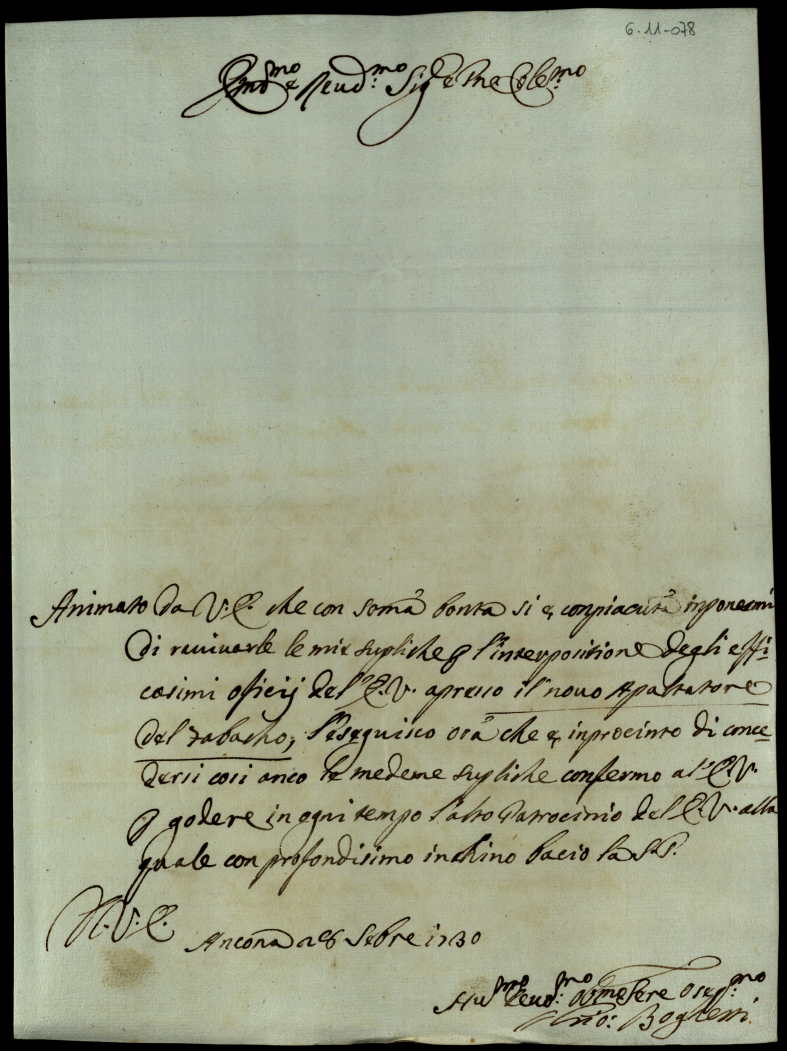 6-11-078
Em.mo e Reud.mo Sig.e Pne Cole.mo
Animato da V.E. che con soma bonta si e conpiaciuta inponermi
di rauiuarle le mie supliche p l'interpositione degli effi-
casimi oficij del'E.V. apresso il nouo Apaltatore
del Tabacho, l'eseguisco ora che e inprocinto di conce-
dersi cosi anco le medeme supliche confermo al'E.V.
p godere in ogni tempo l'alto Patrocinio del'E.V. alla
quale con profondisimo inchino bacio la S.P.
D.V.E. Ancona a 8 Sebre 1730
Hu.mo Deuo.mo Ser e Oseq.mo
Boglessi